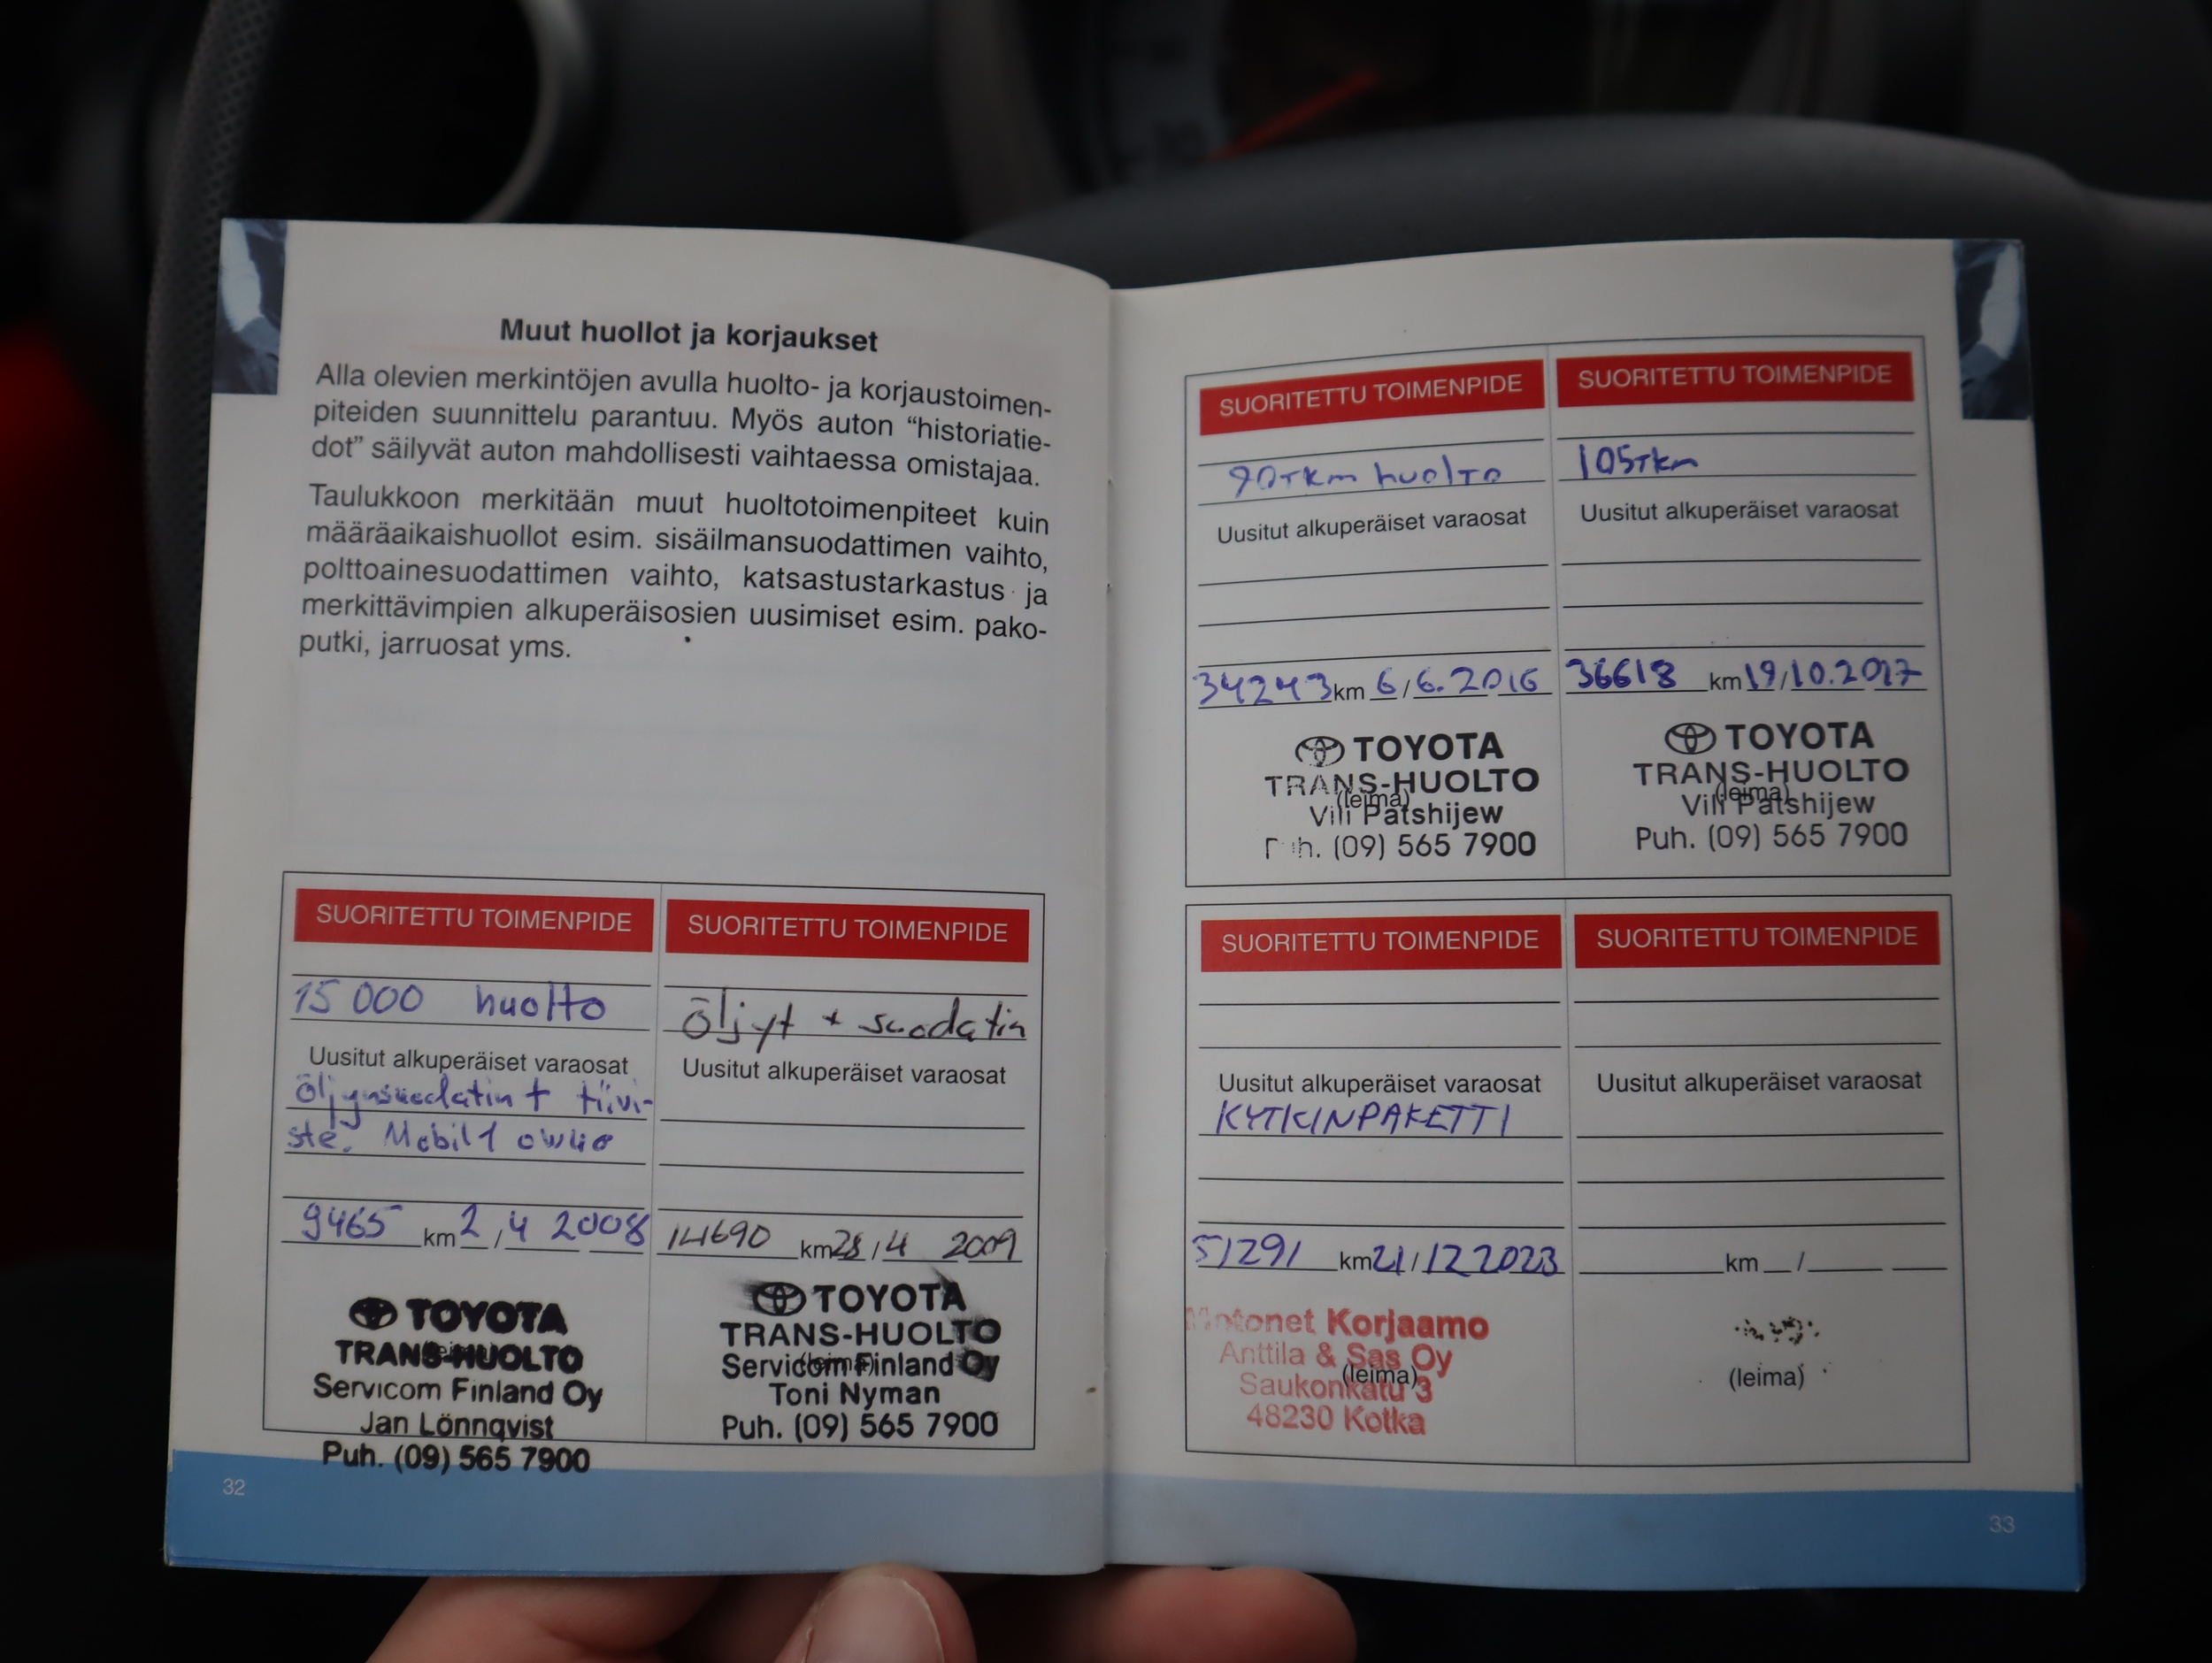 Muut huollot ja korjaukset
Alla olevien merkintöjen avulla huolto- ja korjaustoimen-
piteiden suunnittelu parantuu. Myös auton “historiatie-
dot” säilyvät auton mahdollisesti vaihtaessa omistajaa.
Taulukkoon merkitään muut huoltotoimenpiteet kuin
määräaikaishuollot esim. sisäilmansuodattimen vaihto,
polttoainesuodattimen vaihto, katsastustarkastus ja
merkittävimpien alkuperäisosien uusimiset esim. pako-
putki, jarruosat yms.
SUORITETTU TOIMENPIDE
15 000 huolto
Uusitut alkuperäiset varaosat
öljynsuodatin + tiivi-
ste. Mobil 1 0W40
9465 km 2 / 4 2008
TOYOTA
TRANS-HUOLTO
Servicom Finland Oy
Jan Lönnqvist
Puh. (09) 565 7900
SUORITETTU TOIMENPIDE
öljyt + suodatin
Uusitut alkuperäiset varaosat
14690 km 28 / 4 2009
TOYOTA
TRANS-HUOLTO
(leima)
Servicom Finland Oy
Toni Nyman
Puh. (09) 565 7900
32
SUORITETTU TOIMENPIDE
90TKM huolTo
Uusitut alkuperäiset varaosat
34243 km 6 / 6.2016
TOYOTA
TRANS-HUOLTO
(leima)
Vili Patshijew
Puh. (09) 565 7900
SUORITETTU TOIMENPIDE
105TKM
Uusitut alkuperäiset varaosat
36618 km 19 / 10.2017
TOYOTA
TRANS-HUOLTO
(leima)
Vili Patshijew
Puh. (09) 565 7900
SUORITETTU TOIMENPIDE
Uusitut alkuperäiset varaosat
KYTKINPAKETTI
51291 km 21 / 12 2023
Motonet Korjaamo
Anttila & Sas Oy
(leima)
Saukonkatu 3
48230 Kotka
SUORITETTU TOIMENPIDE
Uusitut alkuperäiset varaosat
km /
(leima)
33